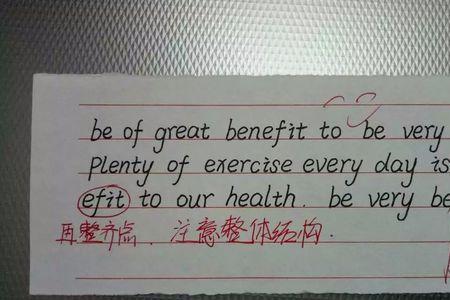 be of great benefit to be very
Plenty of exercise every day is
efit to our health. be very be
再整齐点. 注意整体结构.